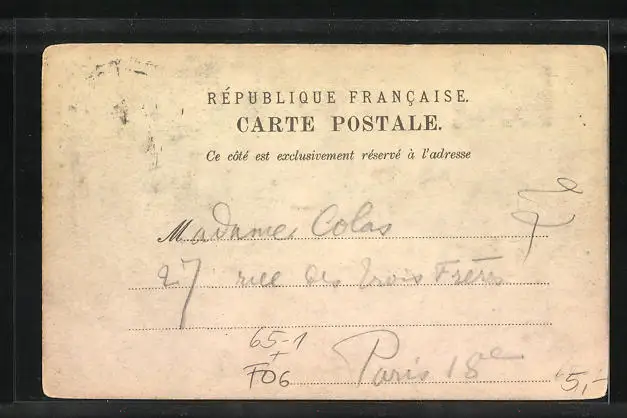 RÉPUBLIQUE FRANÇAISE.
CARTE POSTALE.
Ce côté est exclusivement réservé à l'adresse
Madame Colas
27 rue des trois Frères
65-1
+
F06
Paris 18e
5,-